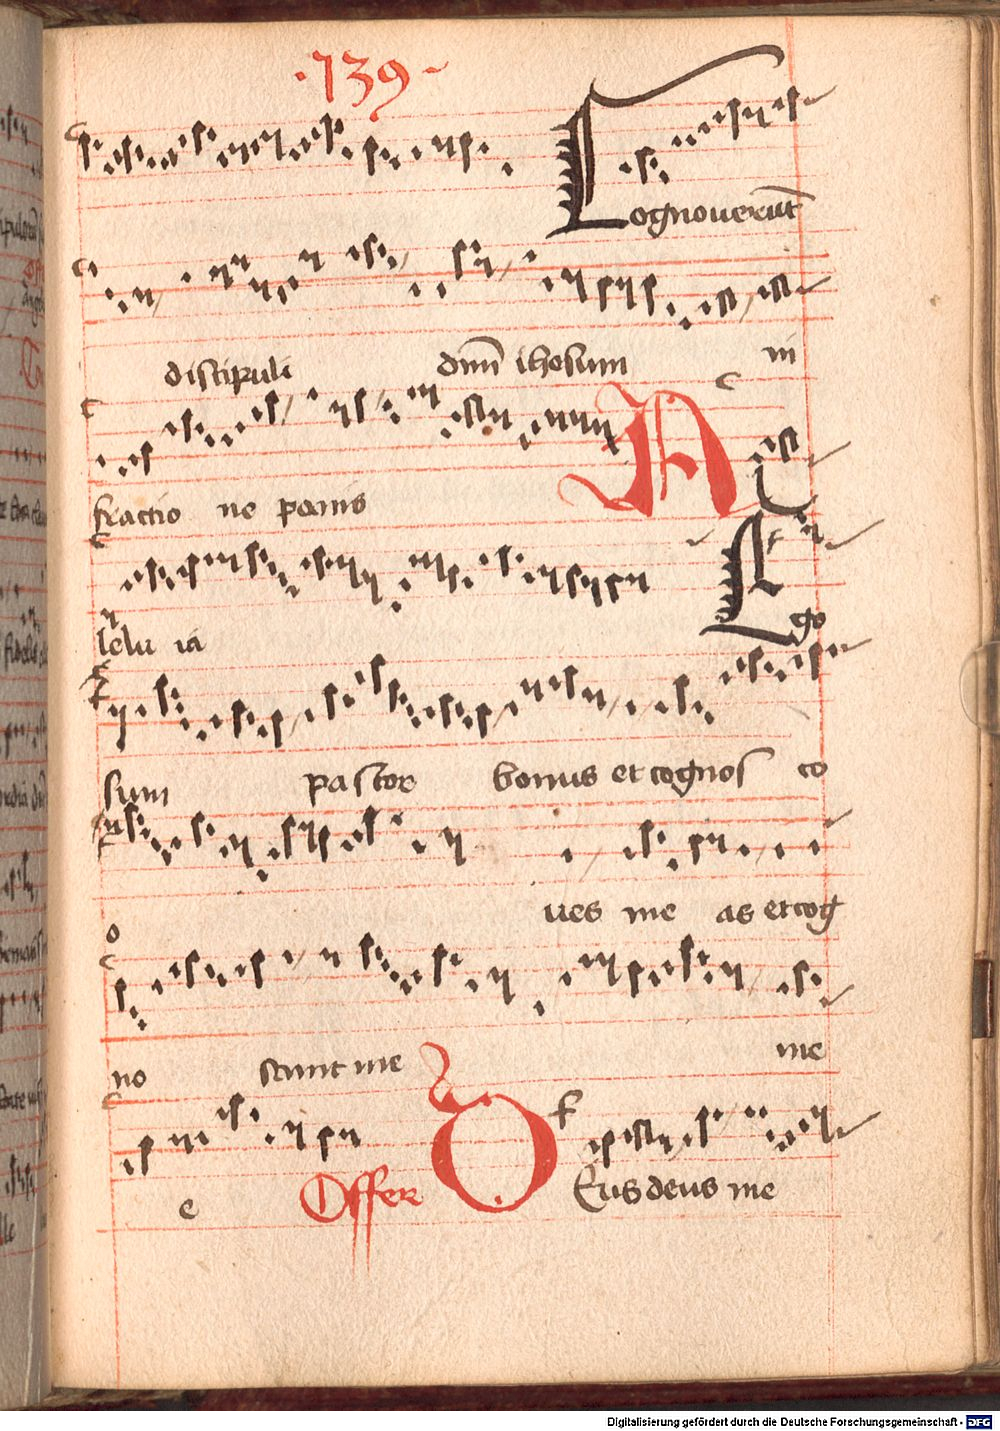 ·139·
Cognouerūt
discipuli dn̄m ihesum in
fractio ne panis A
lelu ia Ego
sum pastor bonus et cognos co
ues me as et cog
no scunt me me
e Offer Deus deus me
Digitalisierung gefördert durch die Deutsche Forschungsgemeinschaft - DFG